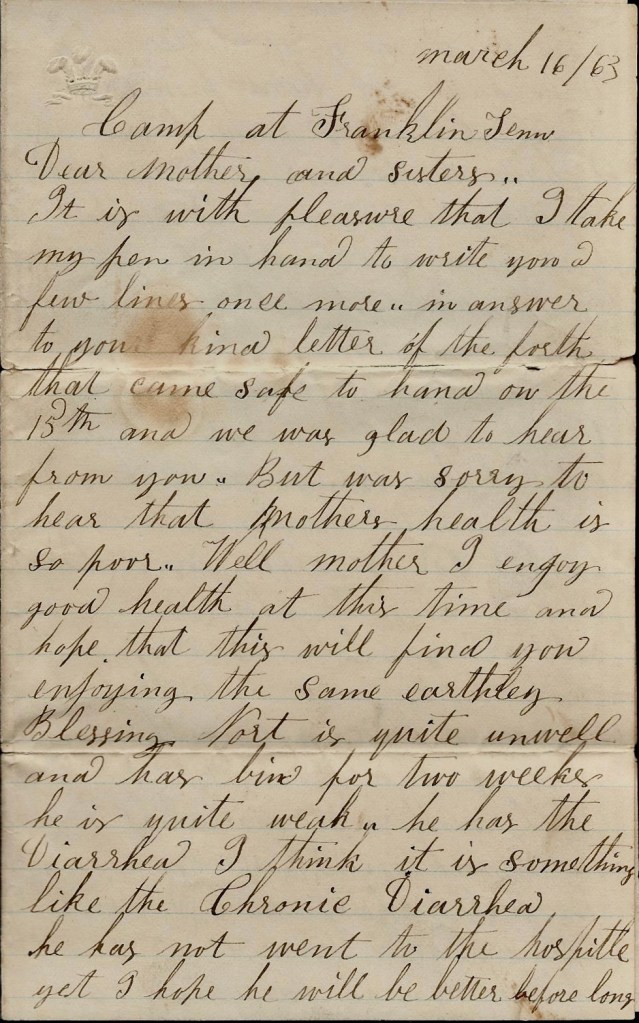 march 16/63
Camp at Franklin Tenn
Dear Mother and sisters..
It is with pleasure that I take
my pen in hand to write you a
few lines once more.. in answer
to your kind letter of the forth
that came safe to hand on the
15th and we was glad to hear
from you.. But was sorry to
hear that Mothers health is
so poor.. Well mother I enjoy
good health at this time and
hope that this will find you
enjoying the same earthley
Blessing Nort is quite unwell
and has bin for two weeks
he is quite weak.. he has the
Diarrhea I think it is something
like the Chronic Diarrhea
he has not went to the hospitle
yet I hope he will be better before long